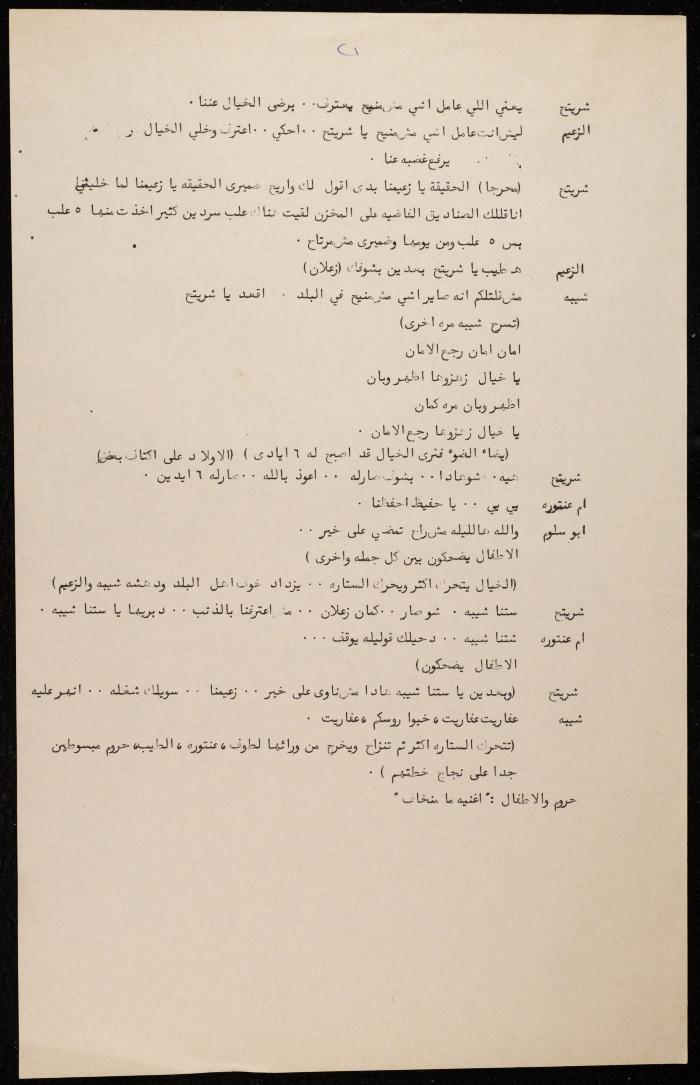 ٢١
شريتح يعني اللي عامل اشي مش منيح يعترف ٠٠ يرضى الخيال عننا ٠
الزعيم ليش انت عامل اشي مش منيح يا شريتح ٠٠ احكي ٠٠ اعترف وخلي الخيال
يرفع غضبه عنا ٠
شريتح (محرجا) الحقيقة يا زعيمنا بدى اقول لك واريح ضميرى الحقيقه يا زعيمنا لما خليتني
انا قللك الصناديق الفاضيه على المخزن لقيت هناك علب سردين كثير اخذت منها ٥ علب
بس ٥ علب ومن يومها وضميرى مش مرتاح ٠
الزعيم هـ طيب يا شريتح بعدين بشوفك (زعلان)
شيبه مش قلتلكم انه صاير اشي مش منيح في البلد ٠ اقعد يا شريتح
(تسرح شيبه مره اخرى)
امان امان رجع الامان
يا خيال زهزوها اظهر وبان
اظهر وبان مره كمان
يا خيال زهزوها رجع الامان ٠
(يضاء الضوء فنرى الخيال قد اصبح له ٦ ايادى ) (الاولاد على اكتاف بعض)
شريتح هيه ٠٠ شو هادا ٠٠ بشوف صارله ٠٠ اعوذ بالله ٠٠ صارله ٦ ايدين ٠
ام عنتوره يي يي ٠٠ يا حفيظ احفظنا ٠
ابو سلوم والله هالليله مش راح تمضي على خير ٠٠
الاطفال يضحكون بين كل جمله واخرى )
(الخيال يتحرك اكثر ويحرك الستاره ٠٠ يزداد خوف اهل البلد ودهشه شيبه والزعيم)
شريتح ستنا شيبه ٠ شو صار ٠٠ كمان زعلان ٠٠ ما اعترفنا بالذنب ٠٠ دبريها يا ستنا شيبه ٠
ام عنتوره شتنا شيبه ٠٠ دحيلك قوليله يوقف ٠٠٠
الاطفال يضحكون)
شريتح (وبعدين يا ستنا شيبه هادا مش ناوى على خير ٠٠ زعيمنا ٠٠ سويلك شغله ٠٠ انهر عليه
شيبه عفاريت عفاريت، خبوا روسكم، عفاريت ٠
(تتحرك الستاره اكثر ثم تنزاح ويخرج من ورائها لطوف، عنتوره، الطيب، حروم مبسوطين
جدا على نجاح خطتهم ) ٠
حروم والاطفال :" اغنيه ما منخاف "